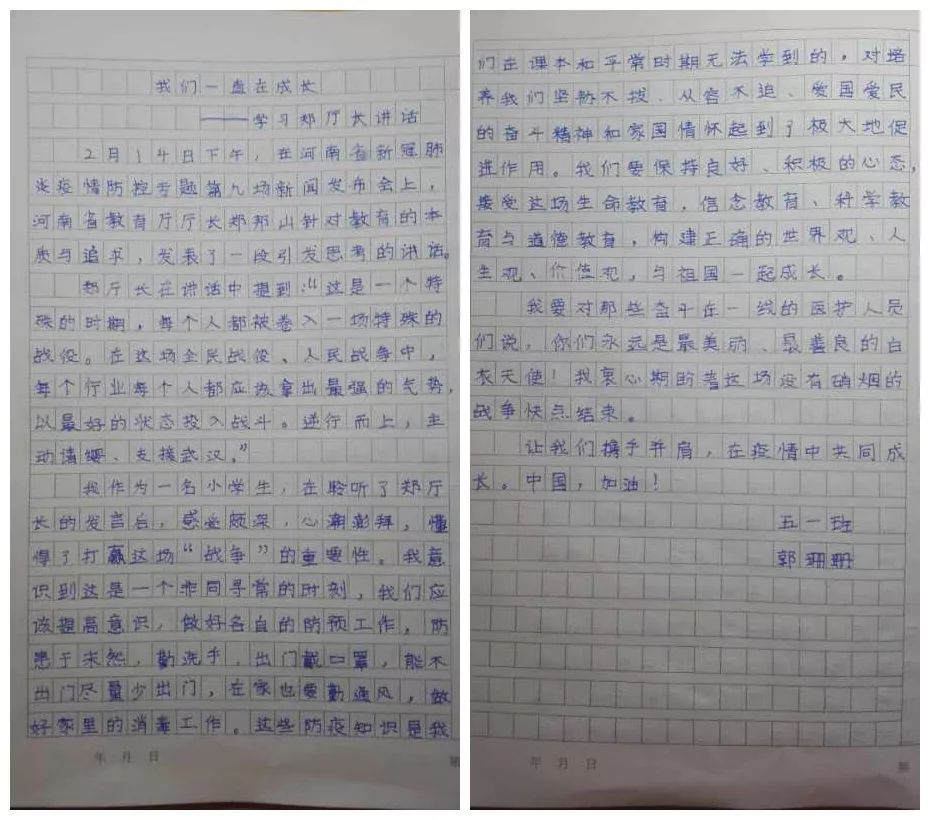 我们一直在成长
——学习郑厅长讲话
2月14日下午，在河南省新冠肺
炎疫情防控专题第九场新闻发布会上，
河南省教育厅厅长郑邦山针对教育的本
质与追求，发表了一段引发思考的讲话。
郑厅长在讲话中提到：“这是一个特
殊的时期，每个人都被卷入一场特殊的
战役。在这场全民战役、人民战争中，
每个行业每个人都应该拿出最强的气势，
以最好的状态投入战斗。逆行而上，主
动请缨、支援武汉。”
我作为一名小学生，在聆听了郑厅
长的发言后，感受颇深，心潮澎拜，懂
得了打赢这场“战争”的重要性。我意
识到这是一个非同寻常的时刻，我们应
该提高意识，做好各自的防预工作，防
患于未然，勤洗手，出门戴口罩，能不
出门尽量少出门，在家也要勤通风，做
好家里的消毒工作。这些防疫知识是我
年 月 日
第
们在课本和平常时期无法学到的，对培
养我们坚韧不拔、从容不迫、爱国爱民
的奋斗精神和家国情怀起到了极大地促
进作用。我们要保持良好、积极的心态，
接受这场生命教育，信念教育、科学教
育与道德教育，构建正确的世界观、人
生观、价值观，与祖国一起成长。
我要对那些奋斗在一线的医护人员
们说，你们永远是最美丽、最善良的白
衣天使！我衷心期盼着这场没有硝烟的
战争快点结束。
让我们携手并肩，在疫情中共同成
长。中国，加油！
五一班
郭珊珊
年 月 日
第